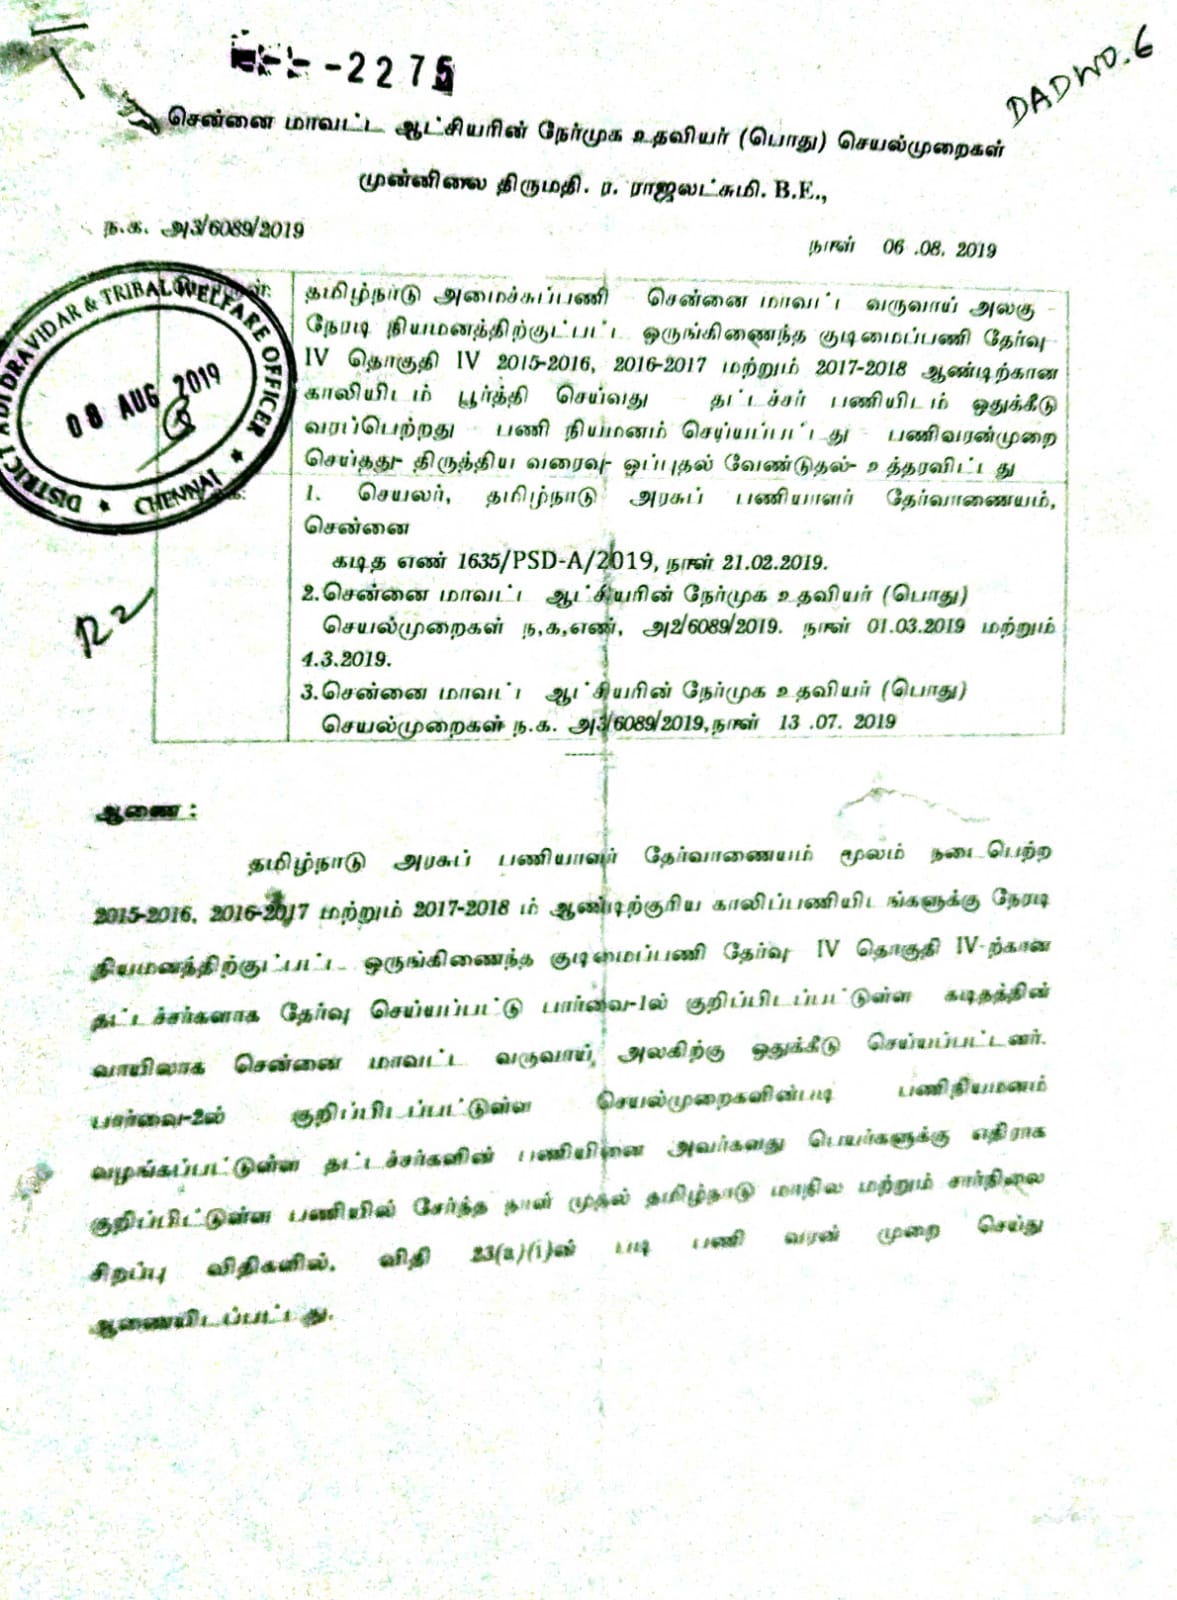 --2275
DADWO.6
சென்னை மாவட்ட ஆட்சியரின் நேர்முக உதவியர் (பொது) செயல்முறைகள்
முன்னிலை திருமதி. ர. ராஜலட்சுமி. B.E.,
ந.க. அ3/6089/2019
நாள் 06 .08. 2019
DISTRICT ADI DRAVIDAR & TRIBAL WELFARE OFFICER ★ CHENNAI ★
08 AUG 2019
தமிழ்நாடு அமைச்சுப்பணி சென்னை மாவட்ட வருவாய் அலகு -
நேரடி நியமனத்திற்குட்பட்ட ஒருங்கிணைந்த குடிமைப்பணி தேர்வு-
IV தொகுதி IV 2015-2016, 2016-2017 மற்றும் 2017-2018 ஆண்டிற்கான
காலியிடம் பூர்த்தி செய்வது - தட்டச்சர் பணியிடம் ஒதுக்கீடு
வரப்பெற்றது - பணி நியமனம் செய்யப்பட்டது - பணிவரன்முறை
செய்தது- திருத்திய வரைவு- ஒப்புதல் வேண்டுதல்- உத்தரவிட்டது
1. செயலர், தமிழ்நாடு அரசுப் பணியாளர் தேர்வாணையம்,
சென்னை
கடித எண் 1635/PSD-A/2019, நாள் 21.02.2019.
2.சென்னை மாவட்ட ஆட்சியரின் நேர்முக உதவியர் (பொது)
செயல்முறைகள் ந,க,எண், அ2/6089/2019. நாள் 01.03.2019 மற்றும்
4.3.2019.
3.சென்னை மாவட்ட ஆட்சியரின் நேர்முக உதவியர் (பொது)
செயல்முறைகள் ந.க. அ3/6089/2019,நாள் 13 .07. 2019
R2
ஆணை :
தமிழ்நாடு அரசுப் பணியாளர் தேர்வாணையம் மூலம் நடைபெற்ற
2015-2016, 2016-2017 மற்றும் 2017-2018 ம் ஆண்டிற்குரிய காலிப்பணியிடங்களுக்கு நேரடி
நியமனத்திற்குட்பட்ட ஒருங்கிணைந்த குடிமைப்பணி தேர்வு IV தொகுதி IV-ற்கான
தட்டச்சர்களாக தேர்வு செய்யப்பட்டு பார்வை-1ல் குறிப்பிடப்பட்டுள்ள கடிதத்தின்
வாயிலாக சென்னை மாவட்ட வருவாய், அலகிற்கு ஒதுக்கீடு செய்யப்பட்டனர்.
பார்வை-2ல் குறிப்பிடப்பட்டுள்ள செயல்முறைகளின்படி பணிநியமனம்
வழங்கப்பட்டுள்ள தட்டச்சர்களின் பணியினை அவர்களது பெயர்களுக்கு எதிராக
குறிப்பிட்டுள்ள பணியில் சேர்ந்த நாள் முதல் தமிழ்நாடு மாநில மற்றும் சார்நிலை
சிறப்பு விதிகளில், விதி 23(a)(i)ன் படி பணி வரன் முறை செய்து
ஆணையிடப்பட்டது.